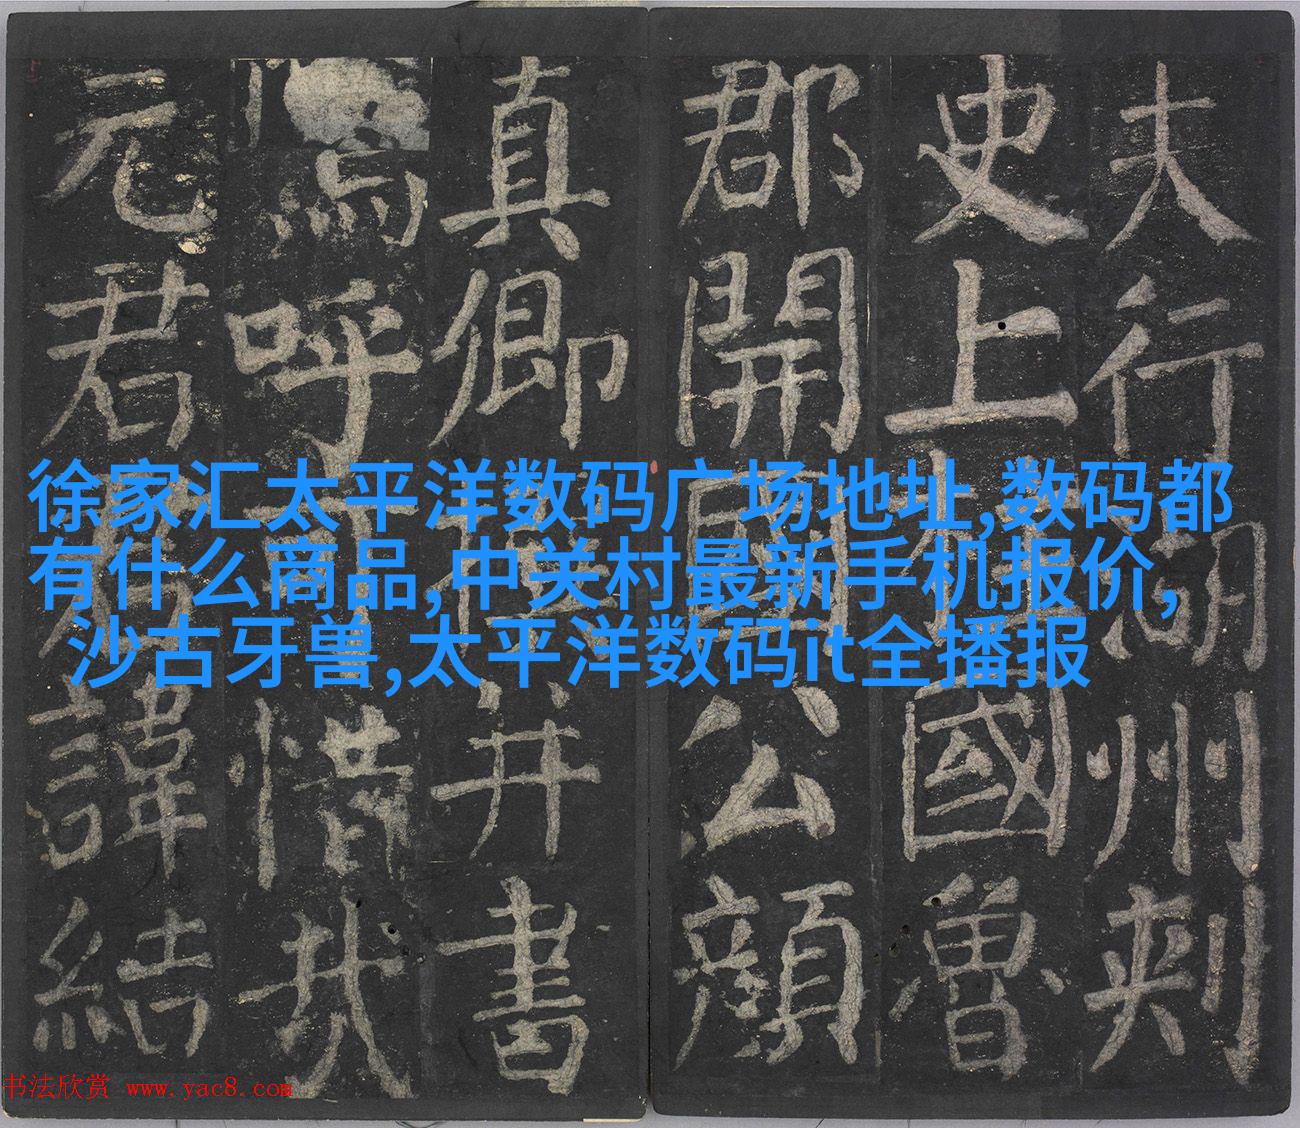 夫行湖州刺
史上柱國魯
郡開國公顏
真卿撰并書
嗚呼可惜哉
元君君諱結
徐家汇太平洋数码广场地址,数码都
有什么商品,中关村最新手机报价,
沙古牙兽,太平洋数码it全播报
书法欣赏 www.yac8.com